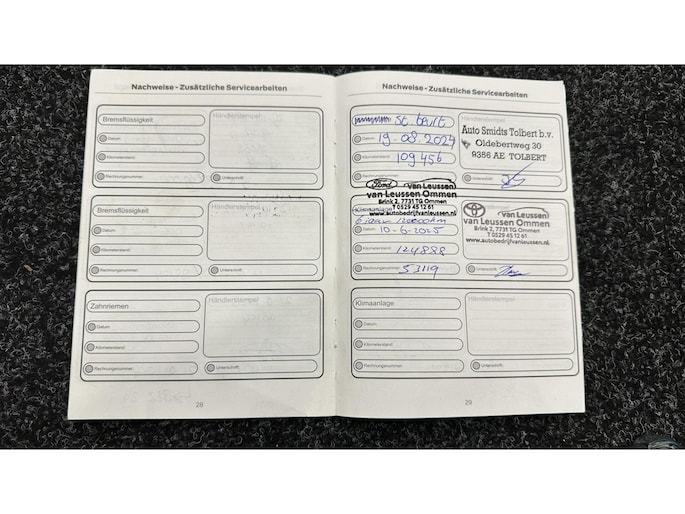 Nachweise - Zusätzliche Servicearbeiten
Bremsflüssigkeit
Händlerstempel
Datum
Kilometerstand
Rechnungsnummer
Unterschrift
Bremsflüssigkeit
Händlerstempel
Datum
Kilometerstand
Rechnungsnummer
Unterschrift
Zahnriemen
Händlerstempel
Datum
Kilometerstand
Rechnungsnummer
Unterschrift
28
Nachweise - Zusätzliche Servicearbeiten
Händlerstempel
Datum 19-08-2024
Kilometerstand 109456
Rechnungsnummer
Auto Smidts Tolbert b.v.
Oldebertweg 30
9356 AE TOLBERT
Unterschrift
Ford van Leussen
van Leussen Ommen
Brink 2, 7731 TG Ommen
T 0529 45 12 61
www.autobedrijfvanleussen.nl
6 jaar 120000km
Datum 10-6-2025
Kilometerstand 124888
Rechnungsnummer 53119
van Leussen
van Leussen Ommen
Brink 2, 7731 TG Ommen
T 0529 45 12 61
www.autobedrijfvanleussen.nl
Unterschrift
Klimaanlage
Händlerstempel
Datum
Kilometerstand
Rechnungsnummer
Unterschrift
29